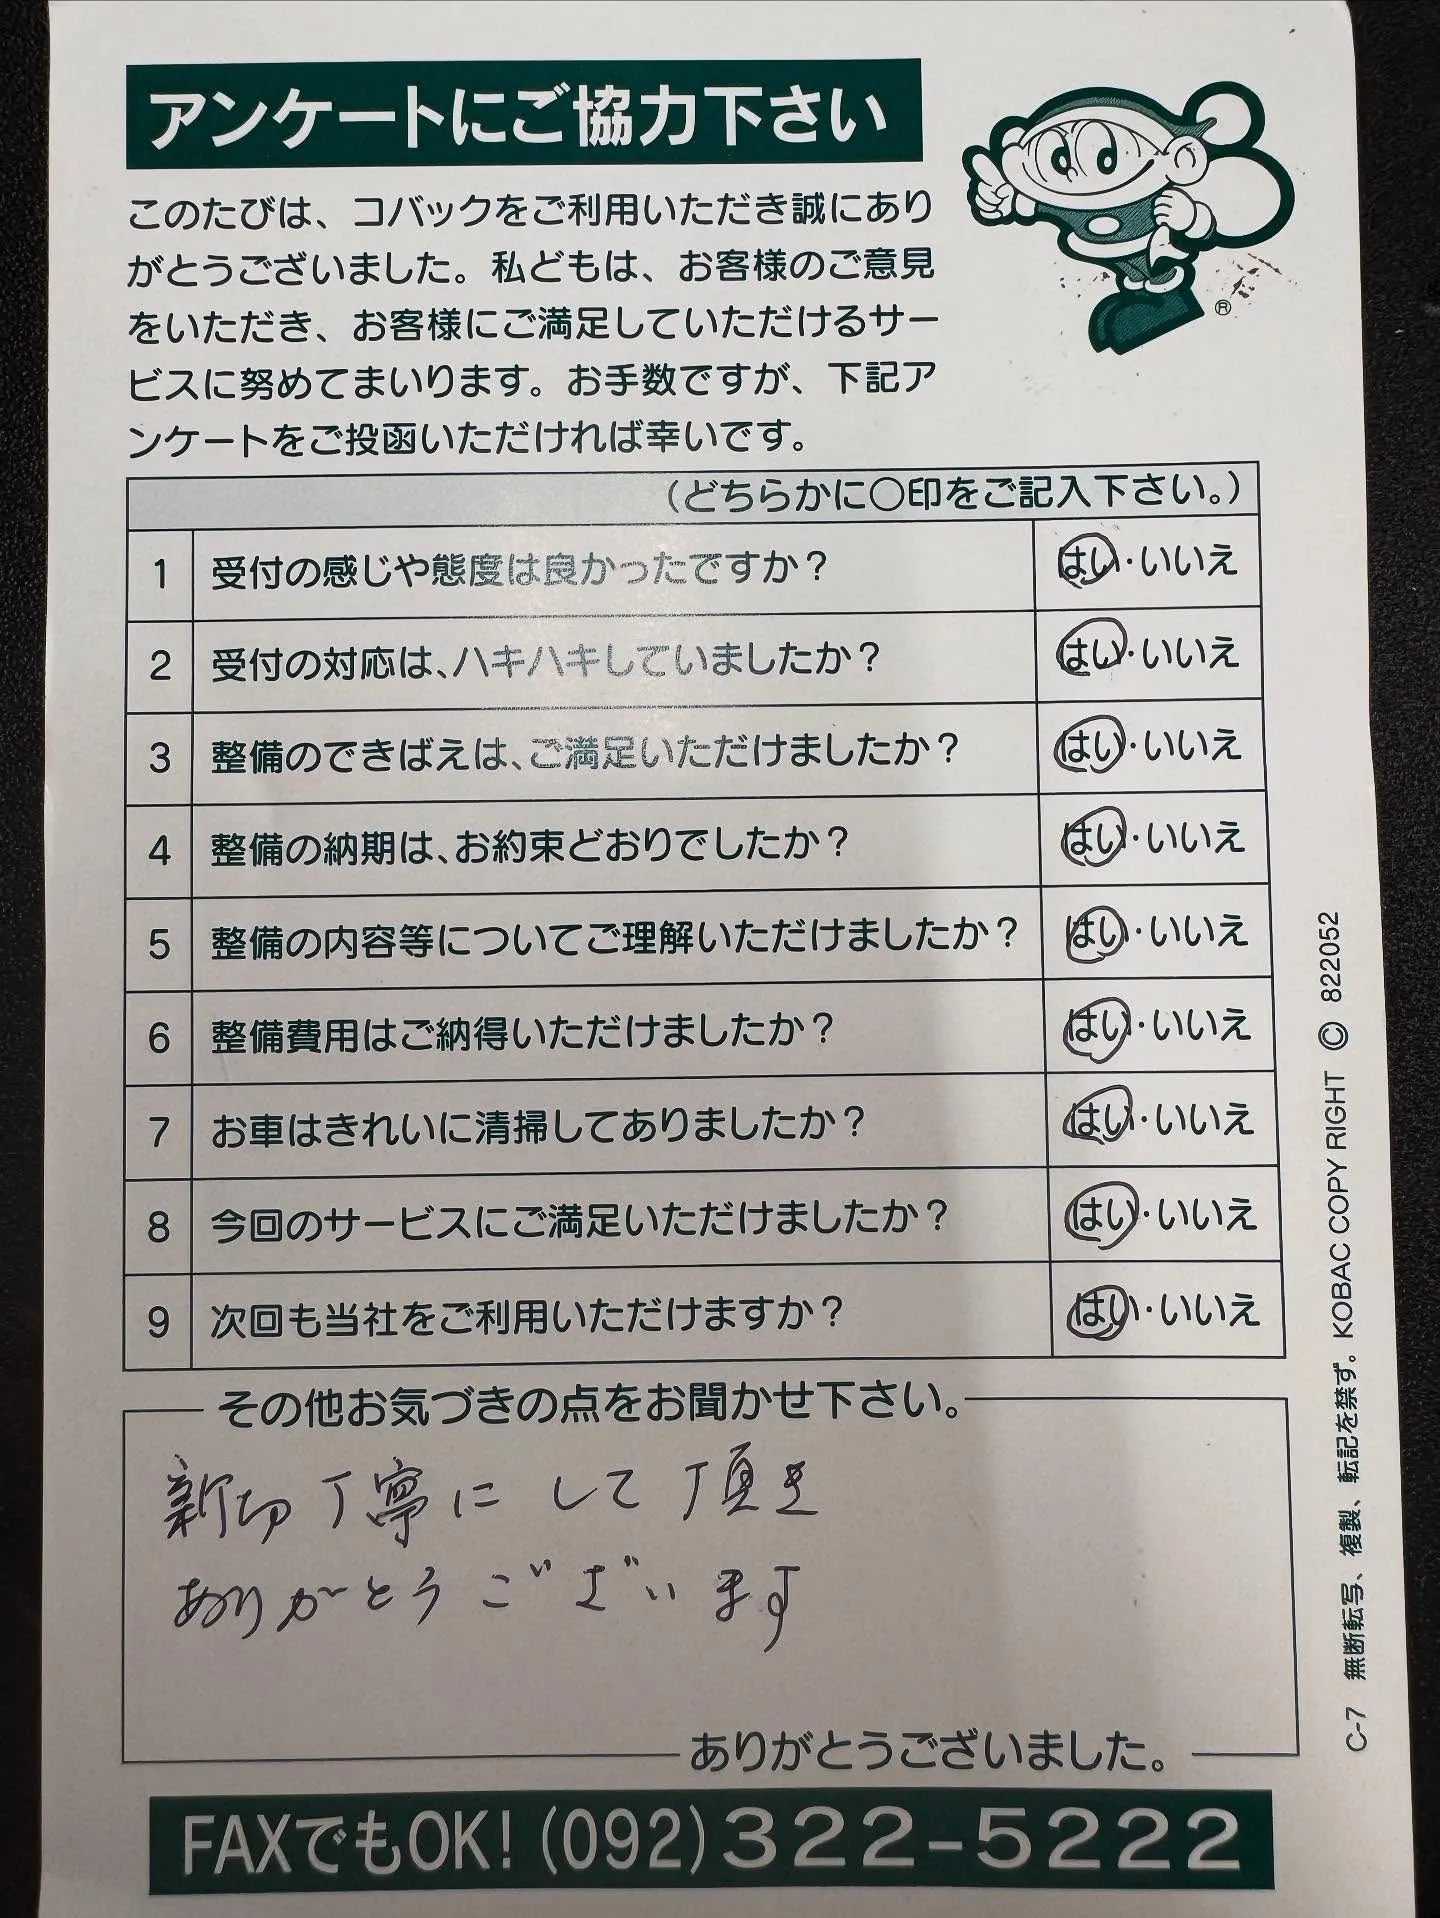 アンケートにご協力下さい
このたびは、コバックをご利用いただき誠にあり
がとうございました。私どもは、お客様のご意見
をいただき、お客様にご満足していただけるサー
ビスに努めてまいります。お手数ですが、下記ア
ンケートをご投函いただければ幸いです。
®
(どちらかに○印をご記入下さい。)
1 受付の感じや態度は良かったですか? はい・いいえ
2 受付の対応は、ハキハキしていましたか? はい・いいえ
3 整備のできばえは、ご満足いただけましたか? はい・いいえ
4 整備の納期は、お約束どおりでしたか? はい・いいえ
5 整備の内容等についてご理解いただけましたか? はい・いいえ
6 整備費用はご納得いただけましたか? はい・いいえ
7 お車はきれいに清掃してありましたか? はい・いいえ
8 今回のサービスにご満足いただけましたか? はい・いいえ
9 次回も当社をご利用いただけますか? はい・いいえ
その他お気づきの点をお聞かせ下さい。
新切丁寧にして頂き
ありがとうございます
ありがとうございました。
FAXでもOK!(092)322-5222
C-7 無断転写、複製、転記を禁ず。KOBAC COPY RIGHT © 822052